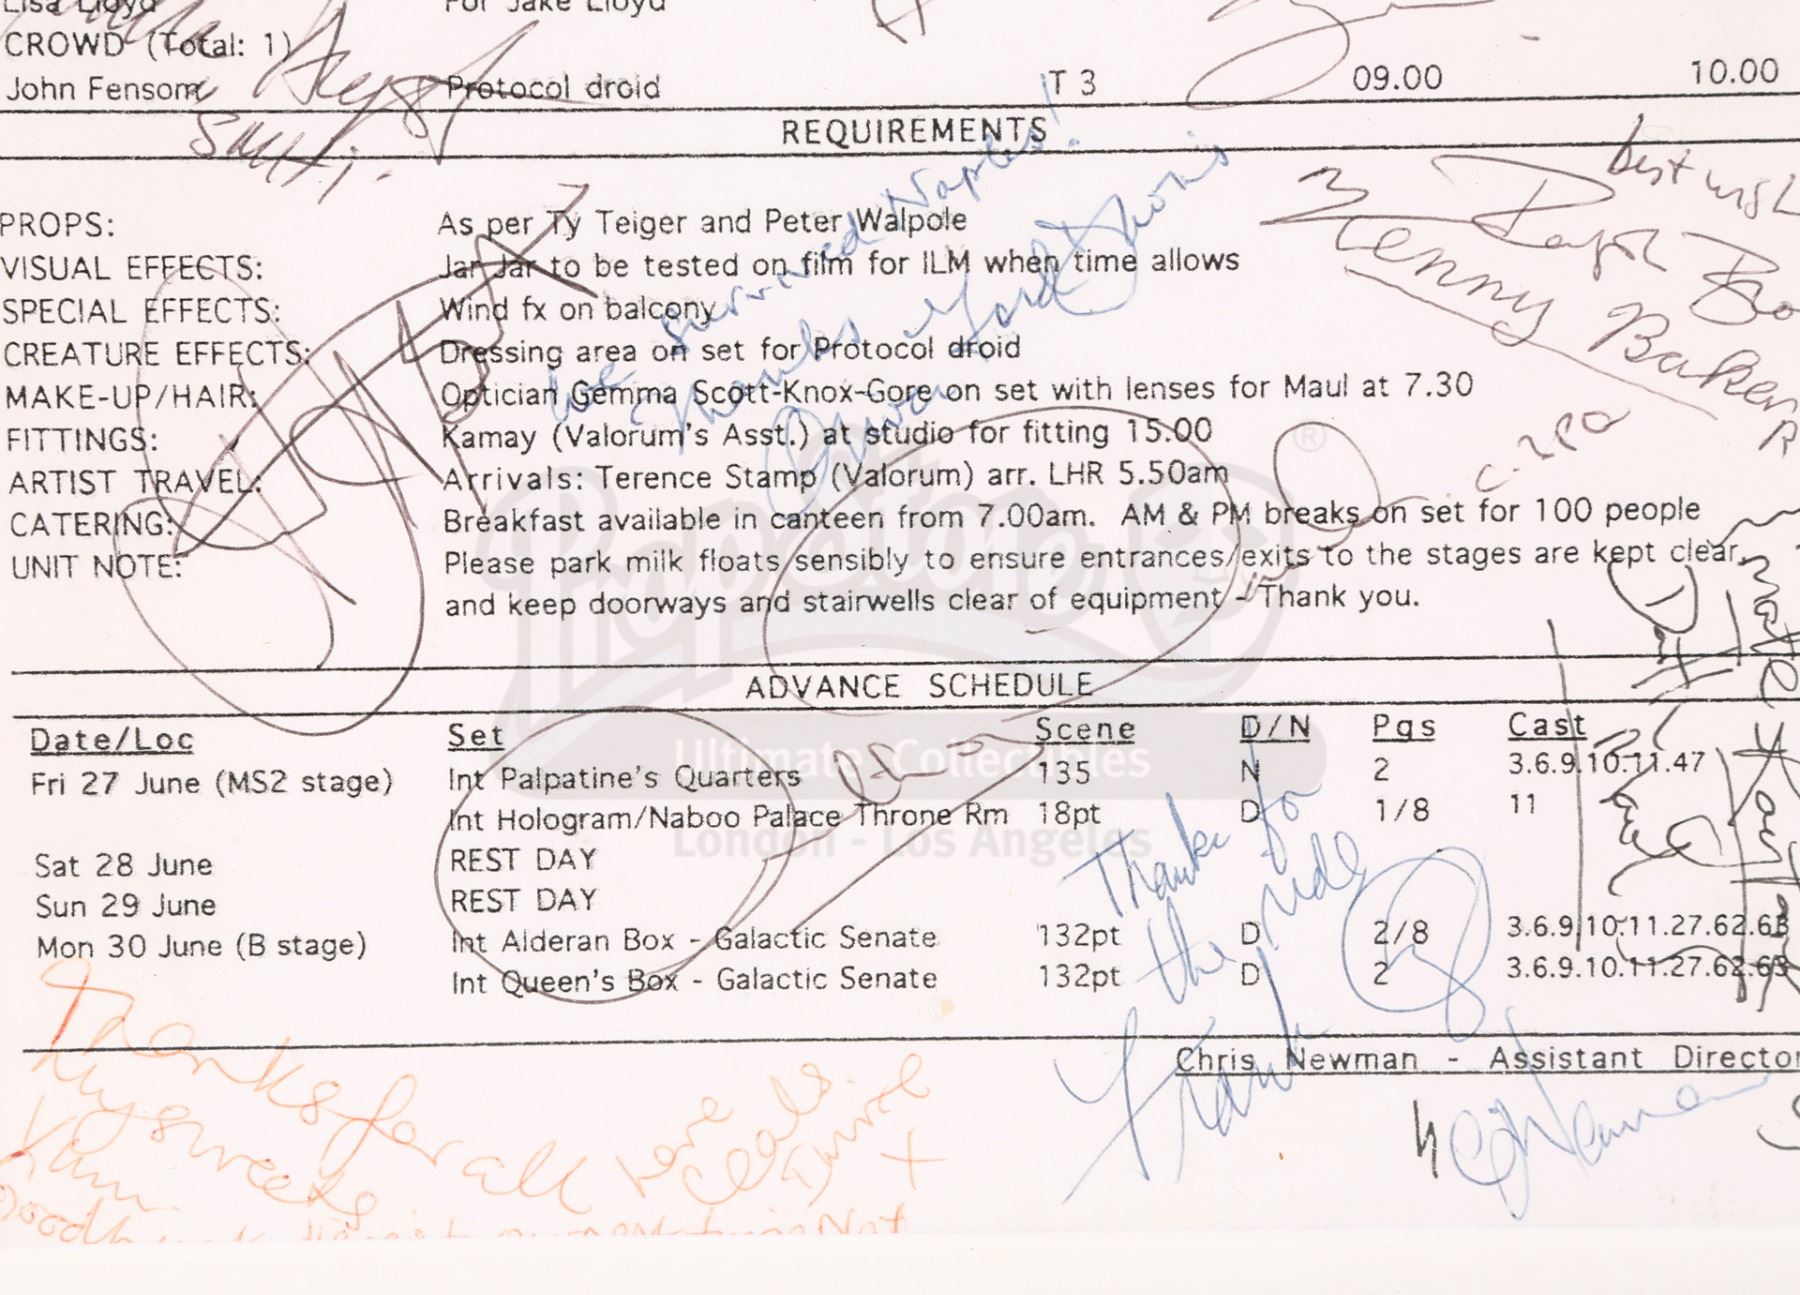 Lisa Lloyd For Jake Lloyd
CROWD (Total: 1)
John Fensom Protocol droid T 3 09.00 10.00
REQUIREMENTS
PROPS: As per Ty Teiger and Peter Walpole
VISUAL EFFECTS: Jar Jar to be tested on film for ILM when time allows
SPECIAL EFFECTS: Wind fx on balcony
CREATURE EFFECTS: Dressing area on set for Protocol droid
MAKE-UP/HAIR: Optician Gemma Scott-Knox-Gore on set with lenses for Maul at 7.30
FITTINGS: Kamay (Valorum's Asst.) at studio for fitting 15.00
ARTIST TRAVEL: Arrivals: Terence Stamp (Valorum) arr. LHR 5.50am
CATERING: Breakfast available in canteen from 7.00am. AM & PM breaks on set for 100 people
UNIT NOTE: Please park milk floats sensibly to ensure entrances/exits to the stages are kept clear,
and keep doorways and stairwells clear of equipment - Thank you.
we survived Naples!
Thanks
best wish
Kenny Baker
ADVANCE SCHEDULE
Date/Loc Set Scene D/N Pgs Cast
Fri 27 June (MS2 stage) Int Palpatine's Quarters 135 N 2 3.6.9.10.11.47
Int Hologram/Naboo Palace Throne Rm 18pt D 1/8 11
Sat 28 June REST DAY
Sun 29 June REST DAY
Mon 30 June (B stage) Int Alderan Box - Galactic Senate 132pt D 2/8 3.6.9.10.11.27.62.63
Int Queen's Box - Galactic Senate 132pt D 2 3.6.9.10.11.27.62.63
Chris Newman - Assistant Director
Thanks for
the ride
Frank
Thanks for all
my sweets
love
X
Propstore
®
Ultimate Collectibles
London - Los Angeles